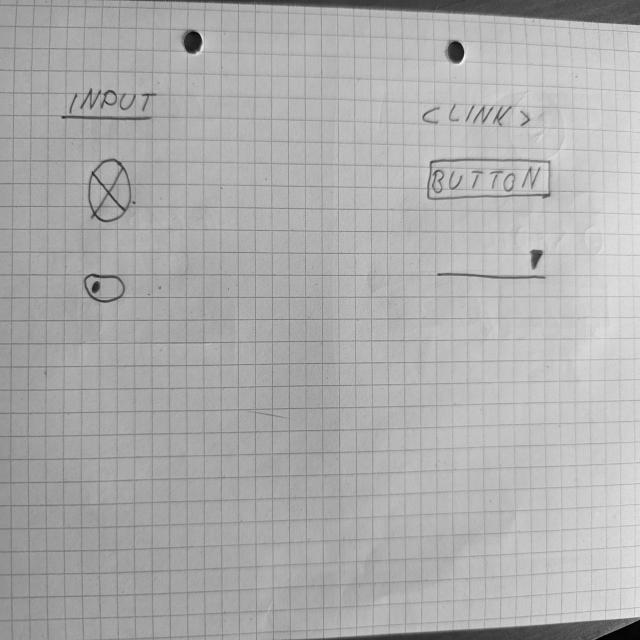 INPUT
<LINK>
BUTTON